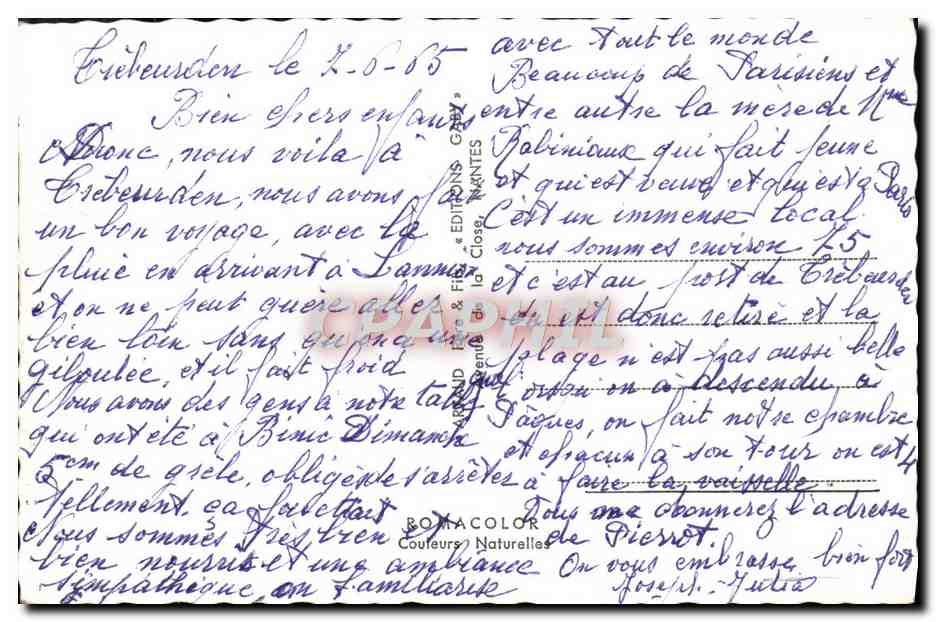 Trébeurden le 7-6-65
Bien chers enfants
Donc, nous voila à
Trébeurden, nous avons fait
un bon voyage, avec la
pluie en arrivant à Lannion
et on ne peut guère aller
bien loin sans qu'on a une
giboulée, et il fait froid
Nous avons des gens à notre table
qui ont été à Binic Dimanche
5cm de grele, obligés de s'arrêter
tellement ça
Nous sommes très bien et
bien nourris et une ambiance
sympathique, on familiarise
avec tout le monde
Beaucoup de Parisiens et
entre autre la mère de Mme
Rabiniaux qui fait jeune
et qui est veuve et qui est à Paris
C'est un immense local
nous sommes environ 75
et c'est au port de Trébeurden
est donc retiré et la
plage n'est pas aussi belle
que on a descendu à
Pâques, on fait notre chambre
et chacun à son tour on est 4
à faire la vaisselle.
Vous me donnerez l'adresse
de Pierrot.
On vous embrasse bien fort
Joseph - Julia
ARNAUD Père & Fils - « EDITIONS GABY »
Avenue de la Close, NANTES
ROMACOLOR
Couleurs Naturelles
CPAPHIL